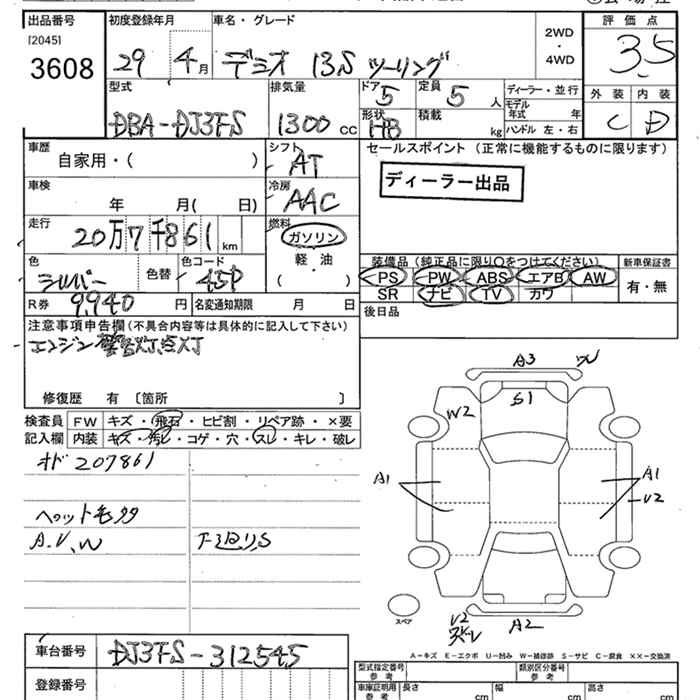 出品番号 初度登録年月 車名・グレード 評価点
[2045]
3608 29 4月 デミオ 13S ツーリング 2WD・4WD 3.5
外装 内装
C D
型式 排気量 ドア 定員 ディーラー・並行
DBA-DJ3FS 1300cc 5 5人 モデル年式 年
形状 積載 kg ハンドル 左・右
HB
車歴 シフト セールスポイント (正常に機能するものに限ります)
自家用・( ) AT
ディーラー出品
車検 冷房
年 月( 日) AAC
走行 燃料
20万7千861km ガソリン
軽・油
( )
色 色替 色コード
シルバー 45P
装備品(純正品に限り○をつけてください) 新車保証書
PS PW ABS エアB AW 有・無
SR ナビ TV カワ
R券 9,940円 名変通知期限 月 日
後日品
注意事項申告欄(不具合内容等は具体的に記入して下さい)
エンジン
修復歴 有 〔箇所 〕
検査員記入欄 FW キズ・飛石・ヒビ割・リペア跡・×要
内装 キズ・汚レ・コゲ・穴・スレ・キレ・破レ
オド 207861
A.V.W
下廻りS
A3
S1
W2
A1
A1
U2
U2
A2
スペア
A-キズ E-エクボ U-凹 W-補修跡 S-サビ C-腐食 ××-交換済
車台番号 DJ3FS-312545
登録番号
型式指定番号 参考 類別区分番号 参考
車庫証明用 参考 長さ cm 幅 cm 高さ cm